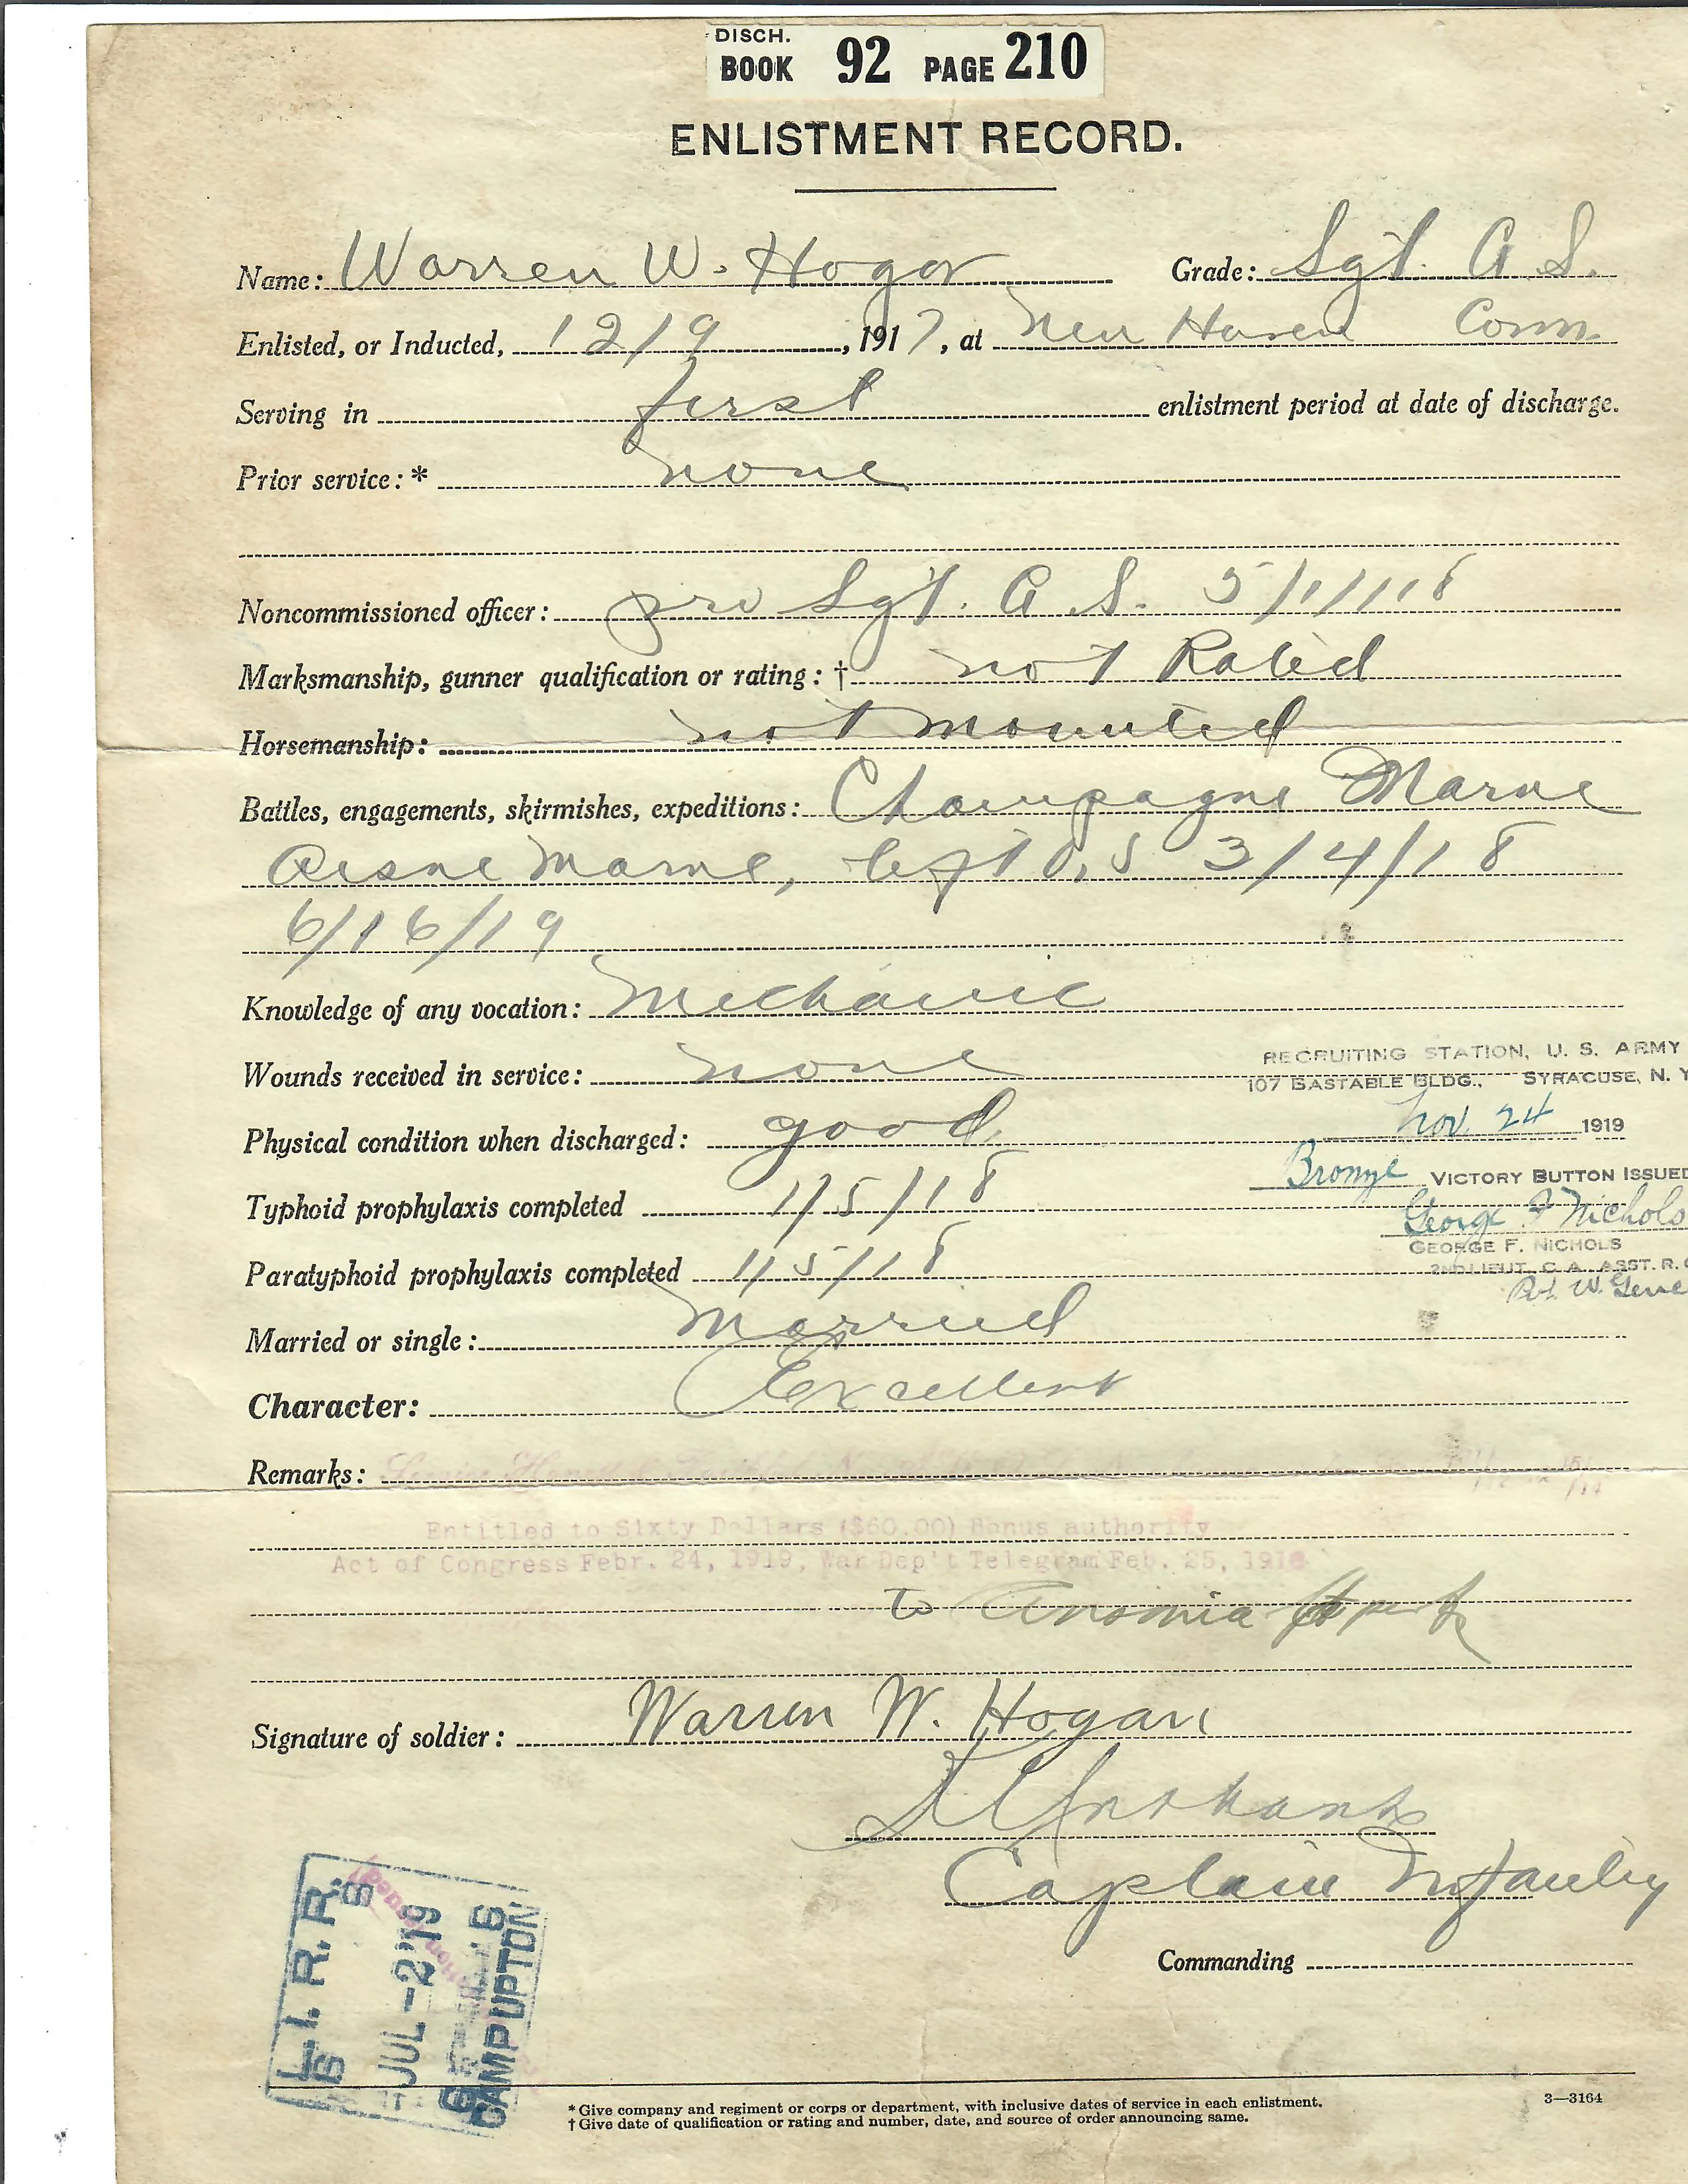 DISCH.
BOOK 92 PAGE 210
ENLISTMENT RECORD.
Name: Warren W. Hogan Grade: Sgt. A. S.
Enlisted, or Inducted, 12/9, 1917, at New Haven Conn.
Serving in first enlistment period at date of discharge.
Prior service: * none
Noncommissioned officer: Sgt. A. S. 5/1/18
Marksmanship, gunner qualification or rating: † not Rated
Horsemanship: not mounted
Battles, engagements, skirmishes, expeditions: Champagne Marne
Aisne Marne, left U.S 3/4/18
6/16/19
Knowledge of any vocation: Mechanic
RECRUITING STATION, U. S. ARMY
Wounds received in service: none
107 BASTABLE BLDG., SYRACUSE, N. Y
Nov. 24 1919
Physical condition when discharged: good
Bronze VICTORY BUTTON ISSUED
Typhoid prophylaxis completed 1/5/18
George F Nichols
GEORGE F. NICHOLS
Paratyphoid prophylaxis completed 1/5/18
2ND LIEUT. C. A. ASST. R.
Married or single: Married
Character: Excellent
Remarks: Service Honest & Faithful
Entitled to Sixty Dollars ($60.00) Bonus authority
Act of Congress Febr. 24, 1919, War Dep't Telegram Feb. 25, 1918
to Ansonia
Signature of soldier: Warren W. Hogan
Captain Infantry
Commanding
L. I. R. R.
JUL -2 '19
CAMP UPTON
* Give company and regiment or corps or department, with inclusive dates of service in each enlistment.
3—3164
† Give date of qualification or rating and number, date, and source of order announcing same.